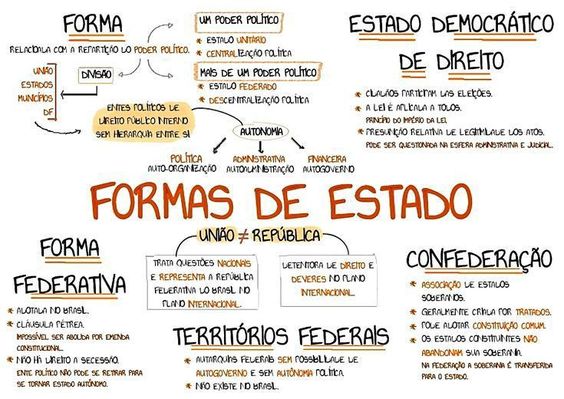 FORMA
RELACIDALA COM A REPARTIÇÃO LO PODER POLÍTICO.
UM PODER POLÍTICO
* ESTALO UNITÁRIO
* CENTRALIZAÇÃO POLÍTICA
MAIS DE UM PODER POLÍTICO
* ESTALO FEDERADO
* DESCENTRALIZAÇÃO POLÍTICA
DIVISÃO
UNIÃO
ESTADOS
MUNICÍPIOS
DF
ENTES POLÍTICOS DE
LIREITO PÚBLICO INTERNO
SEM HIERARQUIA ENTRE SI
AUTONOMIA
POLÍTICA
AUTO-ORGANIZAÇÃO
ADMINISTRATIVA
AUTOALMINISTRAÇÃO
FINANCEIRA
AUTOGOVERNO
ESTADO DEMOCRÁTICO
DE DIREITO
* CILALÃOS PARTICIPAM LAS ELEIÇÕES.
* A LEI É APLICALA A TOLOS.
PRINCÍPIO DO IMPÉRIO DA LEI.
* PRESUNÇÃO RELATIVA LE LEGITIMILALE LOS ATOS.
PODE SER QUESTIONADA NA ESFERA ADMINISTRATIVA E JUDICIAL.
FORMAS DE ESTADO
UNIÃO ≠ REPÚBLICA
TRATA QUESTÕES NACIONAIS
E REPRESENTA A REPÚBLICA
FELERATIVA LO BRASIL NO
PLANO INTERNACIONAL.
LETENTORA LE DIREITO E
DEVERES NO PLANO
INTERNACIONAL.
FORMA
FEDERATIVA
* ALOTALA NO BRASIL.
* CLÁUSULA PÉTREA.
IMPOSSÍVEL SER ABOLIDA POR EMENDA
CONSTITUCIONAL.
* NÃO HÁ LIREITO A SECESSÃO.
ENTE POLÍTICO NÃO PODE SE RETIRAR PARA
SE TORNAR ESTADO AUTÔNOMO.
TERRITÓRIOS FEDERAIS
* AUTARQUIAS FELERAIS SEM POSSIBILIDALE LE
AUTOGOVERNO E SEM AUTONOMIA POLÍTICA.
* NÃO EXISTE NO BRASIL.
CONFEDERAÇÃO
* ASSOCIAÇÃO LE ESTALOS
SOBERANOS.
* GERALMENTE CRIALA POR TRATADOS.
* POLE ALOTAR CONSTITUIÇÃO COMUM.
* OS ESTALOS CONSTITUINTES NÃO
ABANDONAM SUA SOBERANIA.
NA FEDERAÇÃO A SOBERANIA É TRANSFERIDA
PARA O ESTADO.